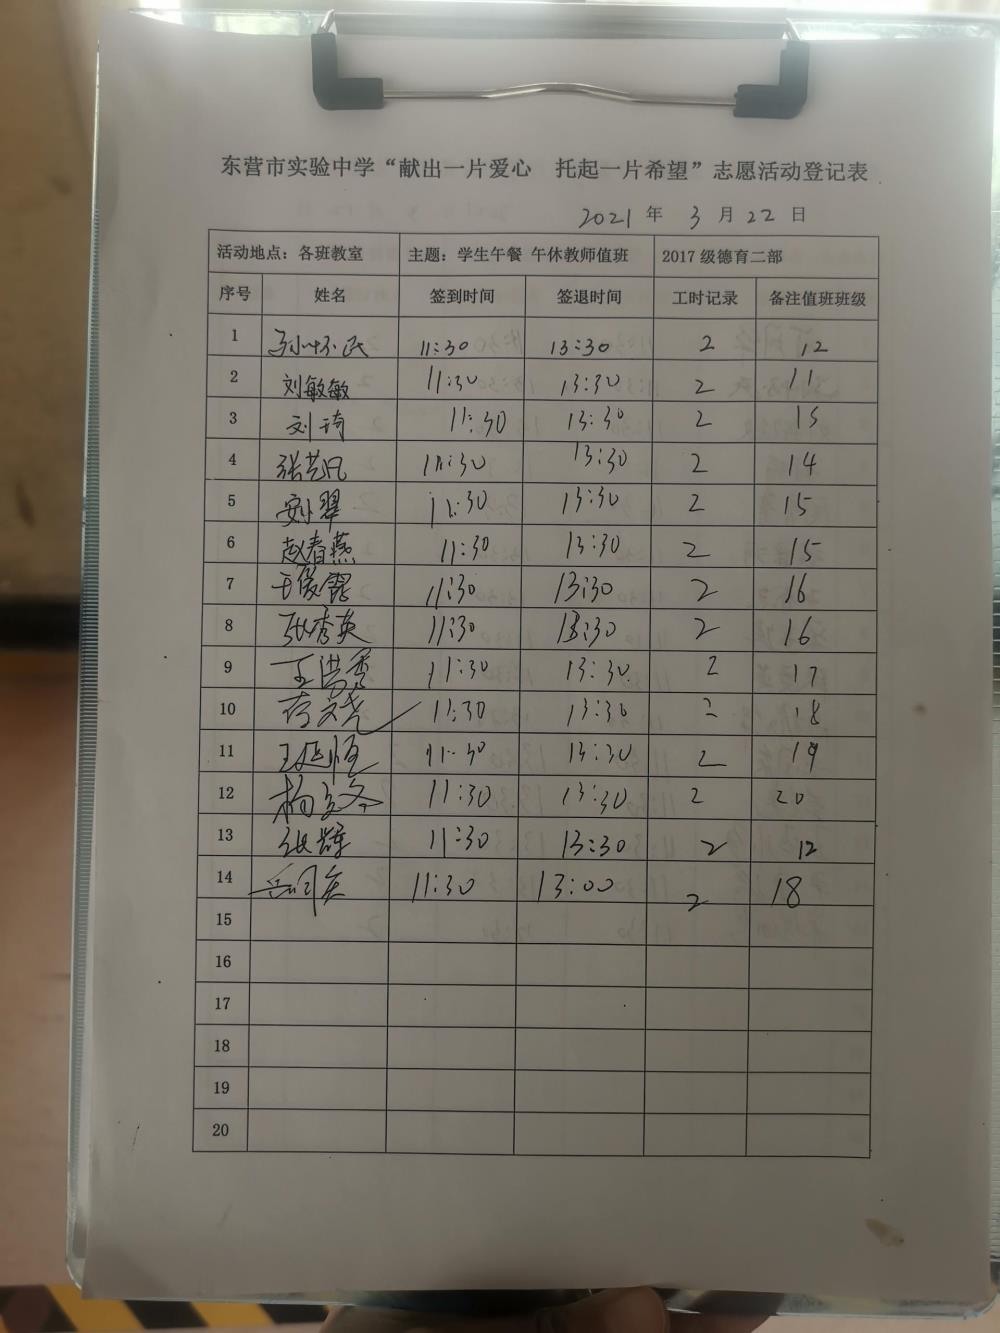 东营市实验中学“献出一片爱心 托起一片希望”志愿活动登记表
2021 年 3 月 22 日
活动地点：各班教室 主题：学生午餐 午休教师值班 2017 级德育二部
序号 姓名 签到时间 签退时间 工时记录 备注值班班级
1 11:30 13:30 2 12
2 刘敏敏 11:30 13:30 2 11
3 刘琦 11:30 13:30 2
4 张艺凡 11:30 13:30 2 14
5 翠 11:30 13:30 2 15
6 赵春燕 11:30 13:30 2 15
7 11:30 13:30 2 16
8 张秀英 11:30 13:30 2 16
9 王 秀 11:30 13:30 2 17
10 11:30 13:30 2 18
11 王延恒 11:30 13:30 2 19
12 杨文 11:30 13:30 2 20
13 张辉 11:30 13:30 2 12
14 11:30 13:00 2 18
15
16
17
18
19
20